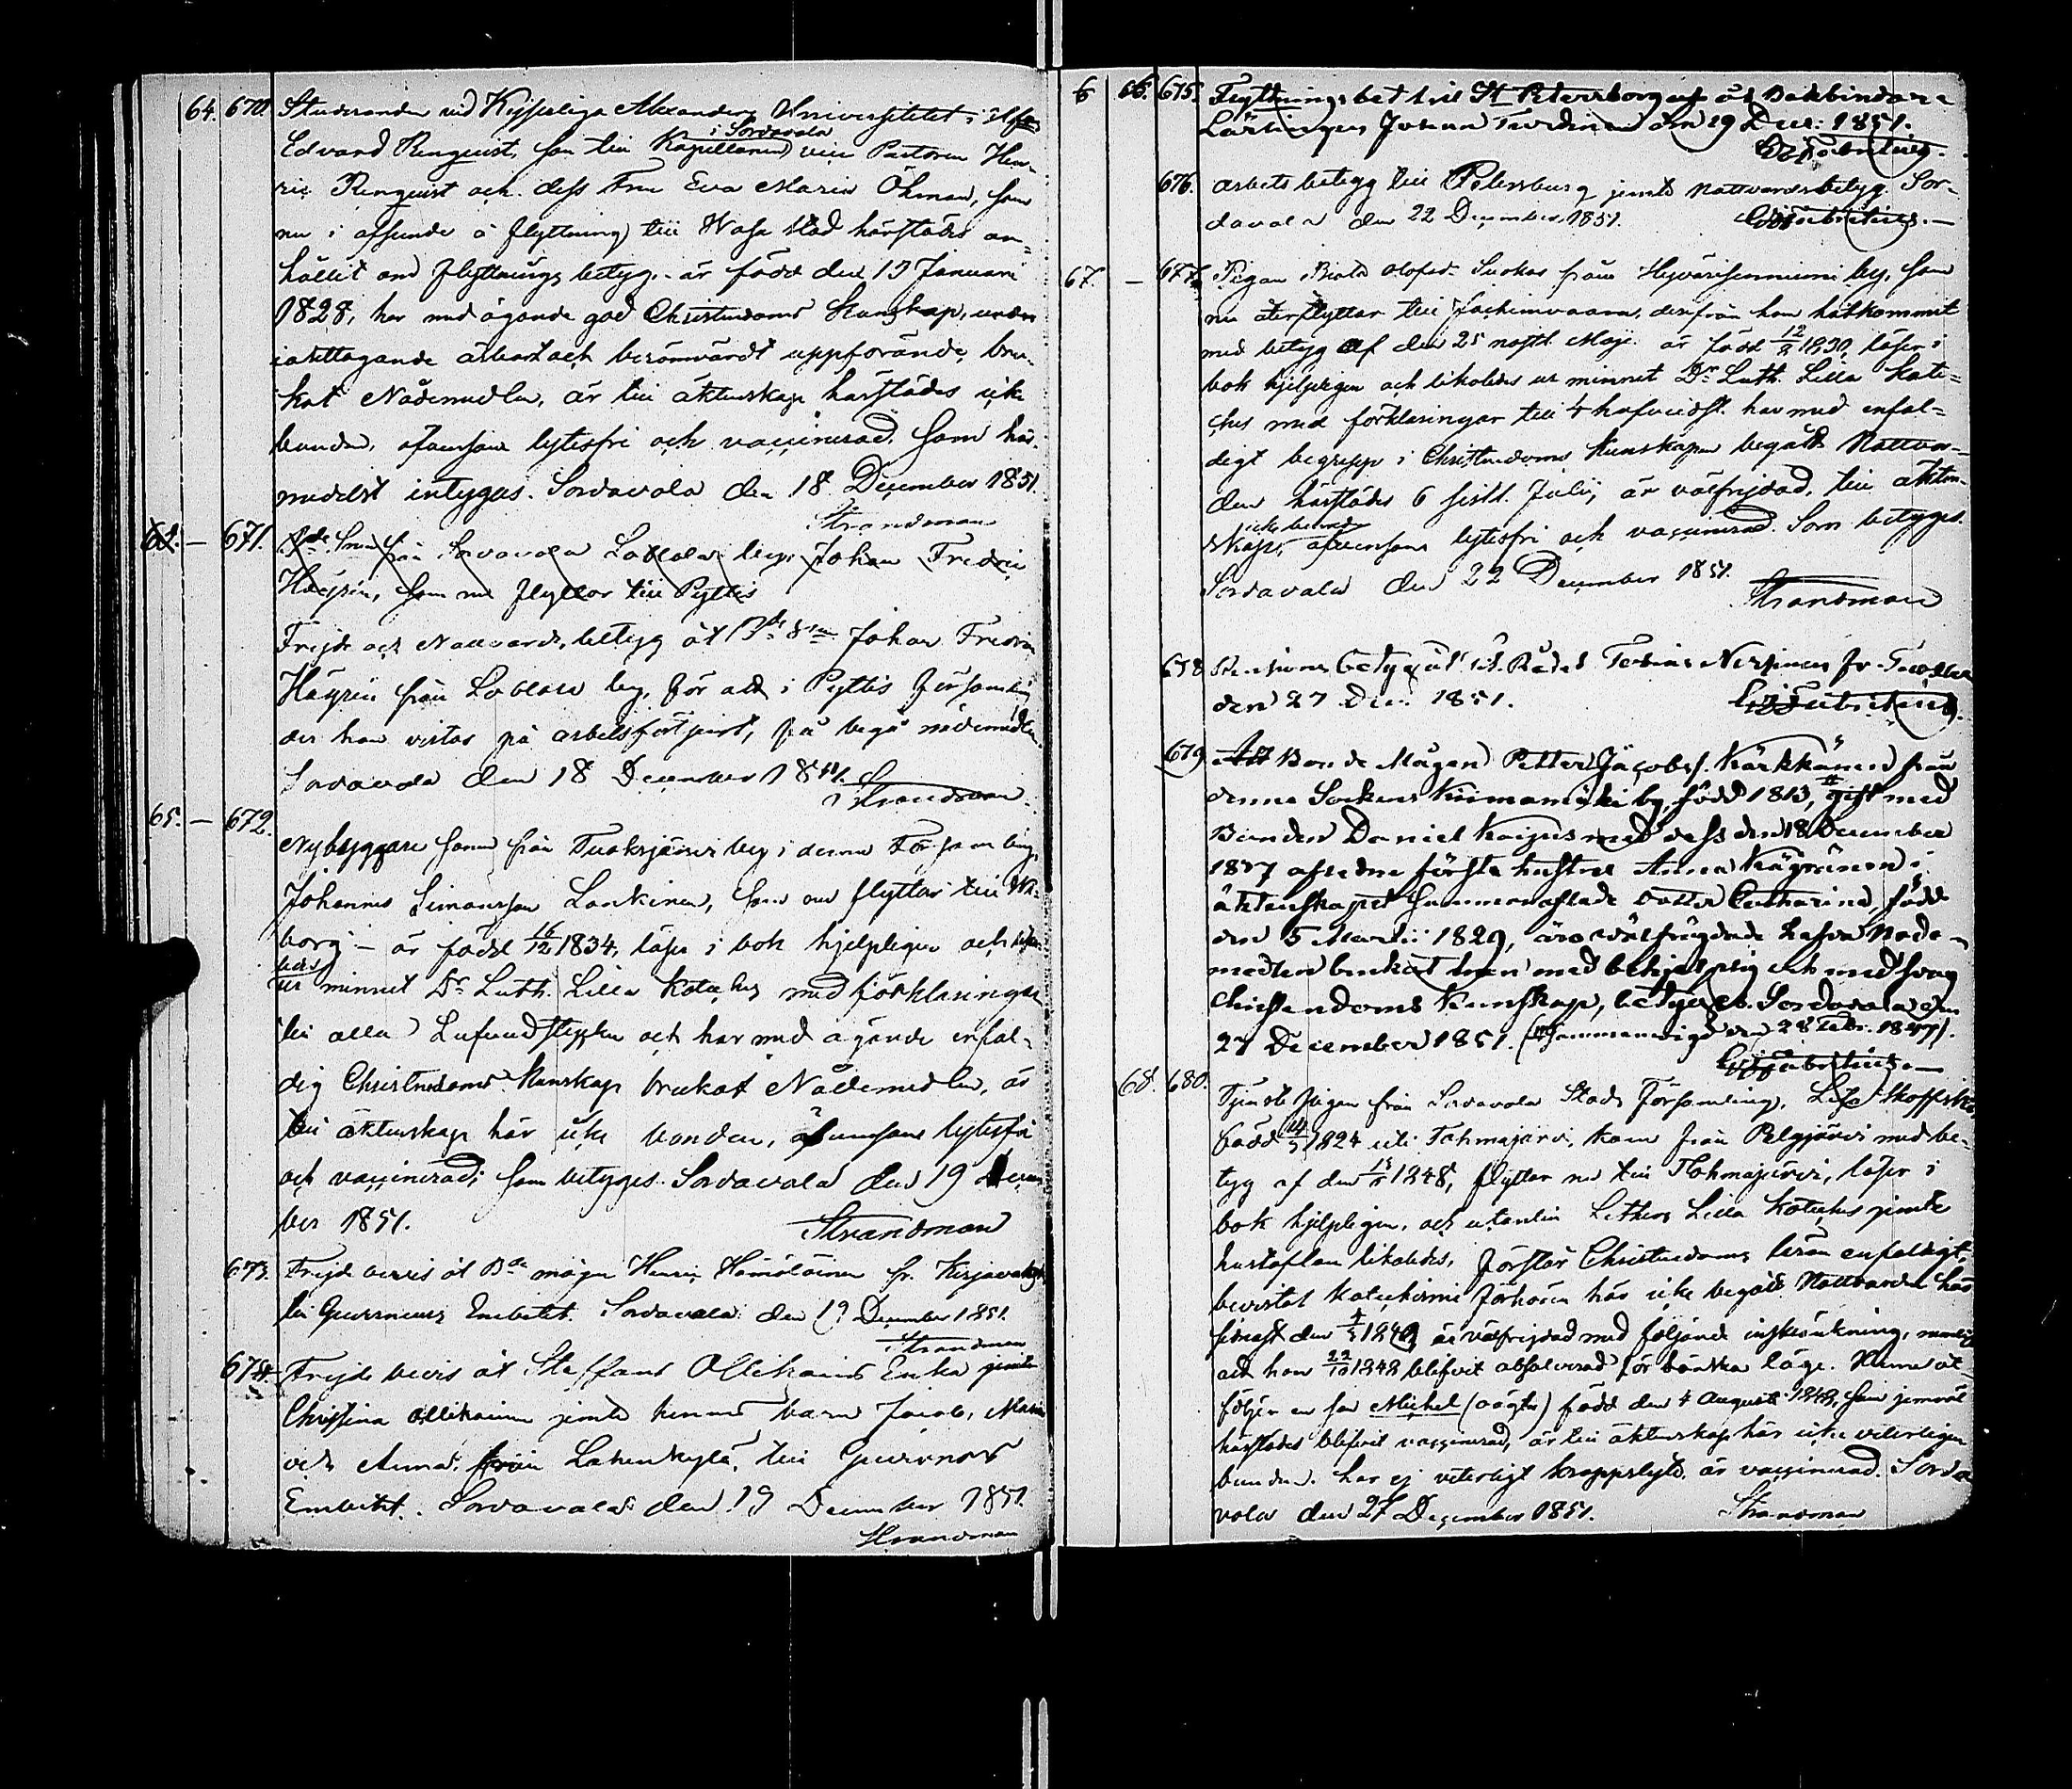 64. 670. Studeranden vid Kejserliga Alexanders Universitetet i Hfors
Edvard Renquist, son till Kapellanen i Sordavala vice Pastoren Hen-
ric Renquist och dess Fru Eva Maria Öhman, som
nu i afseende å flyttning till Wasa stad härstädes an-
hållit om flyttnings betyg, är född den 13 Januari
1828, har med ägande god Christendoms kunskap, under
iakttagande ärbart och berömvärdt uppförande, bru-
kat Nådemedlen, är till äktenskap härstädes icke
bunden, äfvensom lytesfri och vaccinerad, som här-
medelst intygas. Sordavala den 18 December 1851.
Strandman
671. Bde Son från Sordavala Lablola by, Johan Fredric
Häyrin, som nu flyttar till Pyttis
Frejde och Nattvards betyg åt Bde Sn Johan Fredric
Häyrin från Lablola by, för att i Pyttis församling
der han vistas på arbetsförtjenst, få begå nådemedlen.
Sordavala den 18 December 1851.
Strandman
65. — 672.
Nybyggare sonen från Tuoksjärvi by i denna Församling,
Johannes Simonsson Lankinen, som nu flyttar till Wi-
borg — är född 16/12 1834, läser i bok hjelpligen och
ur minnet Dr Luth. Lilla Kateches med förklaringar
till alla hufvudstycken och har med ägande enfal-
dig Christendoms kunskap brukat Nådemedlen, är
till äktenskap här icke bunden, äfvensom lytesfri
och vaccinerad; som betygas. Sordavala den 19 Decem-
ber 1851. Strandman
673. Frejde bevis åt Bde mågen Henric Hämäläinen fr. Kirjavalaks
till Guverneurs Embetet. Sordavala den 19 December 1851.
Strandman
674. Frejde bevis åt Staffans Ollikains Enka
Christina Ollikainen jemte hennes barn Jacob, Maria
och Anna, från Lahenkylä, till Guvernörs
Embetet. Sordavala den 19 December 1851.
Strandman
6 66. 675. Flyttnings bet. till St Petersborg åt Bokbindare
Lärlingen Johan Turdinen den 19 Dec: 1851.
676. Arbets betyg till Petersburg jemte Nattvardsbetyg. Sor-
davala den 22 December 1851.
67. — 677. Pigan Beata Olofsd. Suokas från Hyvärisenniemi by, som
nu återflyttar till Jochimvaara, derifrån hon hitkommit
med betyg af den 25 nästl. Maji. är född 12/8 1830, läser i
bok hjelpligen och likaledes ur minnet Dr Luth. Lilla Kate-
ches med förklaringar till 4 hufvudst. har med enfal-
digt begrepp i Christendoms kunskapen begått Nattvar-
den härstädes 6 sistl. Julii, är välfrejdad, till äkten-
skap icke bunden, äfvensom lytesfri och vaccinerad. Som betygas.
Sordavala den 22 December 1851.
Strandman
678. Pensions betyg åt Tobias
den 27 Dec. 1851.
679. Att Bonde Mågen Petter Jacobss. Kärkkäinen från
denna Sockens Kiimamäki by, född 1813, gift med
Bonden Daniel med dess den 18 December
1837 afledne första hustru Anna
äktenskapet sammanaflade dotter Catharina, född
den 5 Martii 1829, äro välfrejdade, hafva Nåde-
medlen brukat, han med behjelplig och med svag
Christendoms kunskap, betygas. Sordavala den
27 December 1851. (Sammanvigde den 28 Febr. 1847).
68. 680.
Tjenste pigan från Sordavala Stads Församling, Lisa
född 1824 uti Tohmajärvi, kom från Pelgjärvi med be-
tyg af den 1848, flyttar nu till Tohmajärvi, läser i
bok hjelpligen, och utantill Luthers Lilla Kateches jemte
hustaflan likaledes, förstår Christendoms läran enfaldigt,
bevistat Katechismi förhören här icke begått Nattvarden här
sedan den 1849, är välfrejdad med följande inskränkning, nemlig
att hon 22/10 1848 blifvit absolverad för lönska läge. Henne åt-
följer en son Michel (oägta) född den 4 Augusti 1848, som jemväl
härstädes blifvit vaccinerad, är till äktenskap här icke veterligen
bunden. har ej veterligt kroppslyte, är vaccinerad. Sorda-
vala den 27 December 1851. Strandman